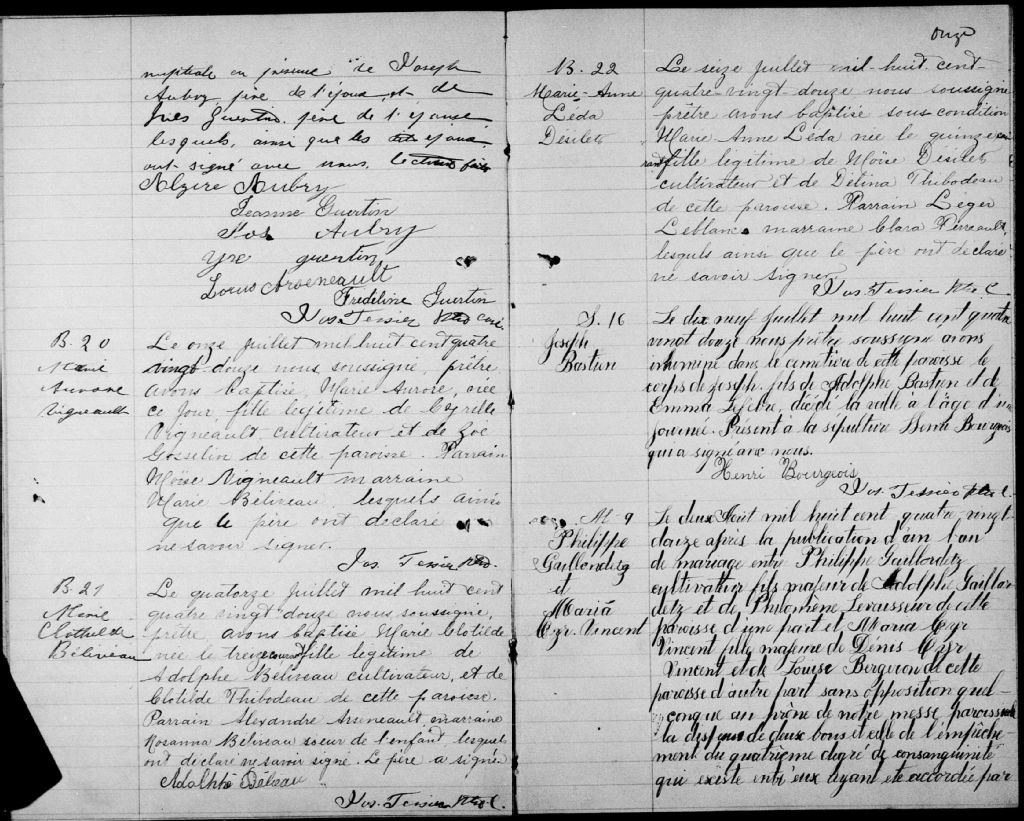 nuptiale en présence de Joseph
Aubry, père de l'époux, et de
père de l'épouse
lesquels, ainsi que les époux,
ont signé avec nous, lecture faite
Alzire Aubry
Jeanne Guertin
Jos Aubry
guertin
Louis Arseneault
Fredeline Guertin
Jos. Tessier Ptre Curé
B. 20
Marie
Aurore
Vigneault
Le onze juillet mil huit cent quatre
vingt douze nous soussigné, prêtre,
avons baptisé, Marie Aurore, née
ce jour fille légitime de Cyrille
Vigneault, cultivateur et de Zoé
Gosselin de cette paroisse. Parrain
Moïse Vigneault marraine
Marie Béliveau lesquels ainsi
que le père ont déclaré
ne savoir signer.
Jos. Tessier Ptre.
B. 21
Marie
Clothilde
Béliveau
Le quatorze juillet mil huit cent
quatre vingt douze nous soussigné,
prêtre, avons baptisé Marie Clotilde
née le treize courant fille légitime de
Adolphe Béliveau cultivateur, et de
Clotilde Thibodeau de cette paroisse.
Parrain Alexandre Arseneault, marraine
Rosanna Béliveau soeur de l'enfant, lesquels
ont déclaré ne savoir signé. Le père a signé.
Adolphe
Jos. Tessier Ptre C.
onze
B. 22
Marie-Anne
Léda
Désilets
Le seize juillet mil-huit-cent-
quatre-vingt-douze nous soussigné
prêtre avons baptisé sous condition
Marie-Anne Léda née le quinze cou
rant fille légitime de Moïse Désilets
cultivateur et de Délina Thibodeau
de cette paroisse. Parrain Léger
Leblanc marraine Clara Perreault,
lesquls ainsi que le père ont déclaré
ne savoir signer
Jos. Tessier Ptre C.
S. 16
Joseph
Bastien
Le dix neuf Juillet mil huit cent quatre
vingt douze nous prêtre soussigné avons
inhumé dans le cimetière de cette paroisse le
corps de Joseph, fils de Adolphe Bastien et de
Emma Lefebre, décédé la veille à l'âge d'une
journée. Présent à la sépulture Henri Bourgeois
qui a signé avec nous.
Henri Bourgeois
Jos. Tessier Ptre C.
M-9
Philippe
Gaillardetz
et
Maria
Cyr. Vincent
Le deux Août mil huit cent quatre-vingt-
douze après la publication d'un ban
de mariage entre Philippe Gaillardetz
cultivateur fils majeur de Adolphe Gaillar
detz et de Philomène Levasseur de cette
paroisse d'une part et Maria Cyr
Vincent fille majeure de Dénis Cyr
Vincent et de Louise Bergeron de cette
paroisse d'autre part sans opposition quel-
conque au prône de notre messe paroissiale
la dispense de deux bans et celle de l'empêche-
ment du quatrième degré de consanguinité
qui existe entr'eux ayant été accordée par